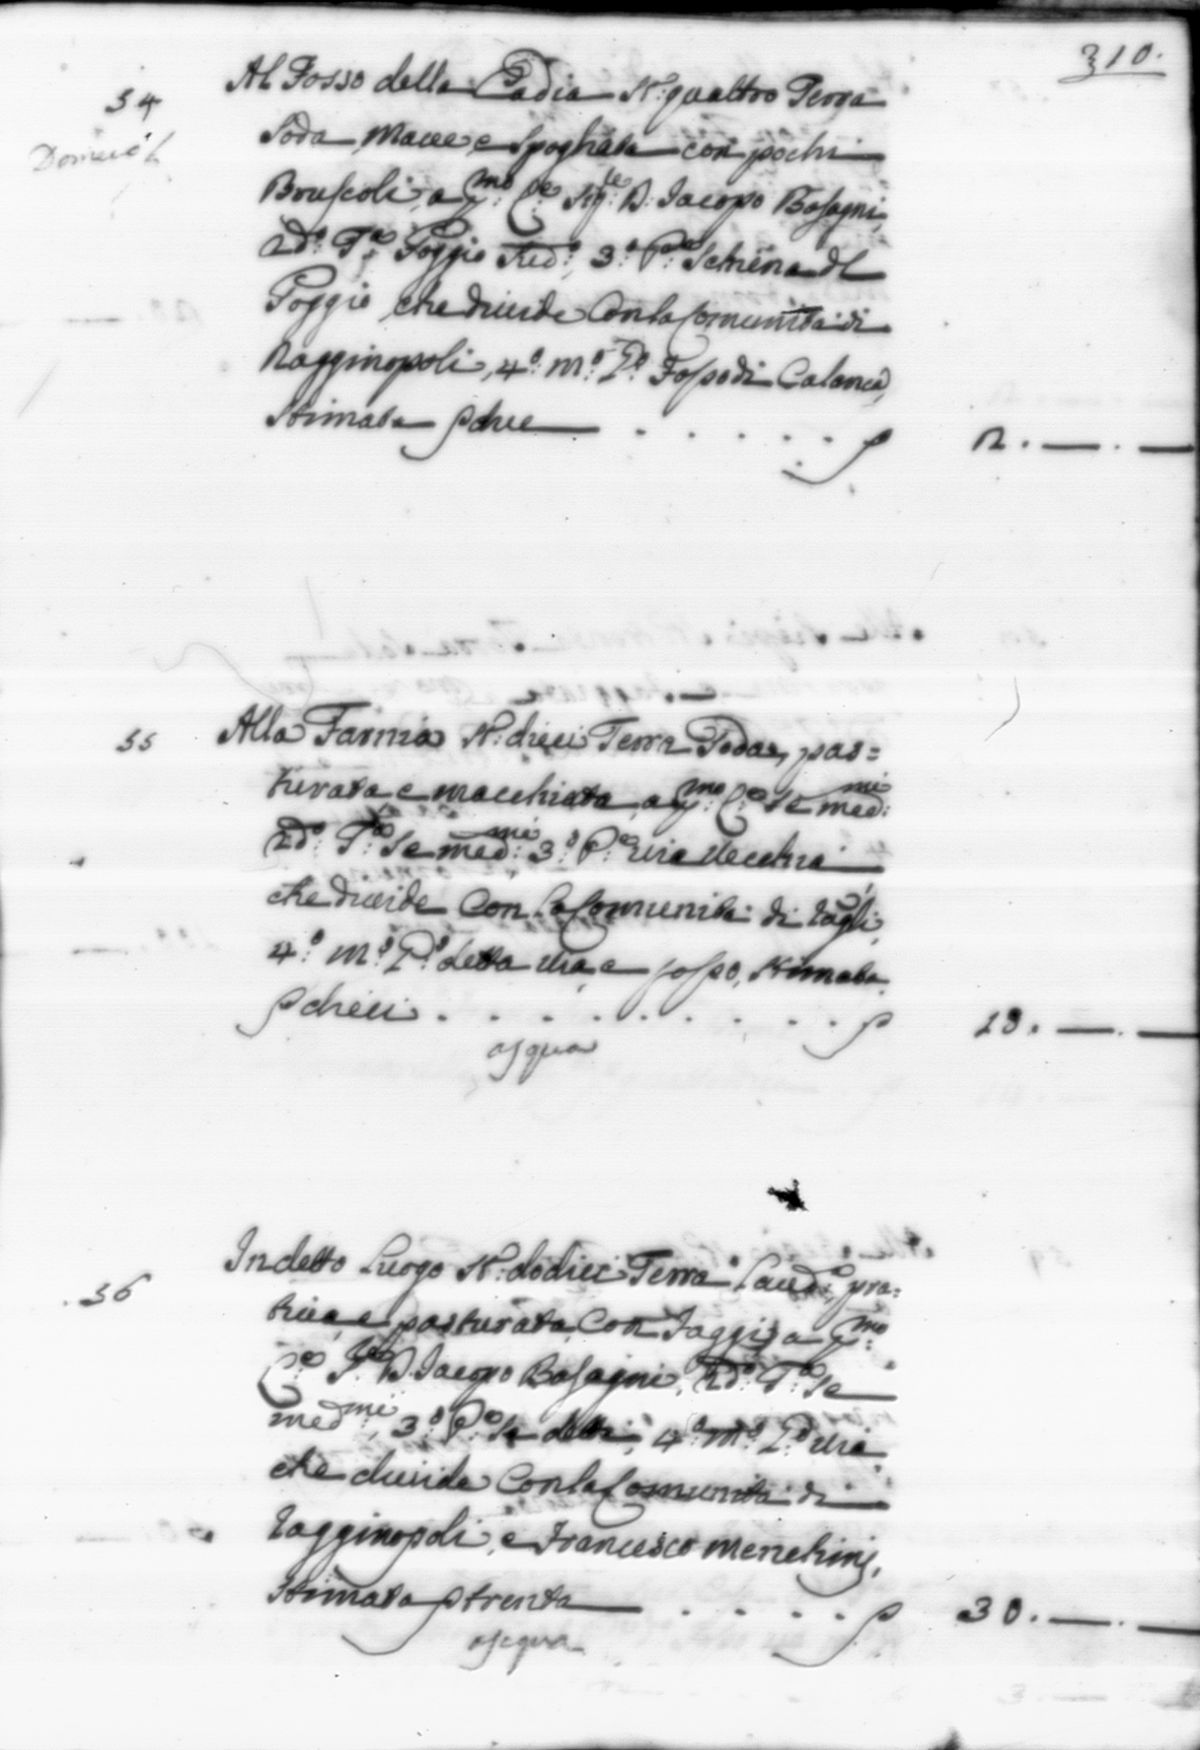 310.
54
Al Fosso della Badia N. quattro Terra
Soda Macee, e Spogliata con pochi
Bruscoli, a p.mo C.o Sig.re D. Iacopo Basagni,
2do. T.a Poggio Fred.o, 3.o P.e Schiena del
Poggio che divide Con la Comunità di
Ragginopoli, 4.o M.o P.o Fosso di
Stimata
55
Alla Farnia N. dieci Terra Soda, pas=
turata e macchiata, a p.mo C.o Se med.mi
2do. T.a Se med.mi 3.o P.e Via Vecchia
che divide Con la Comunità di Raggli,
4.o M.o P.o detta Via, e fosso, Stimata
dieci
acqua
56
In detto Luogo N. dodici Terra Lavd.a, pra=
tiva, e pasturata, Con Faggi, a p.mo
C.o S.re D. Iacopo Basagni, 2do. T.a Se
med.mi, 3.o P.e Se detti, 4.o M.o P.o Via
che divide Con la Comunità di
Ragginopoli, e Francesco Menchini,
Stimata trenta
30. — . —
acqua